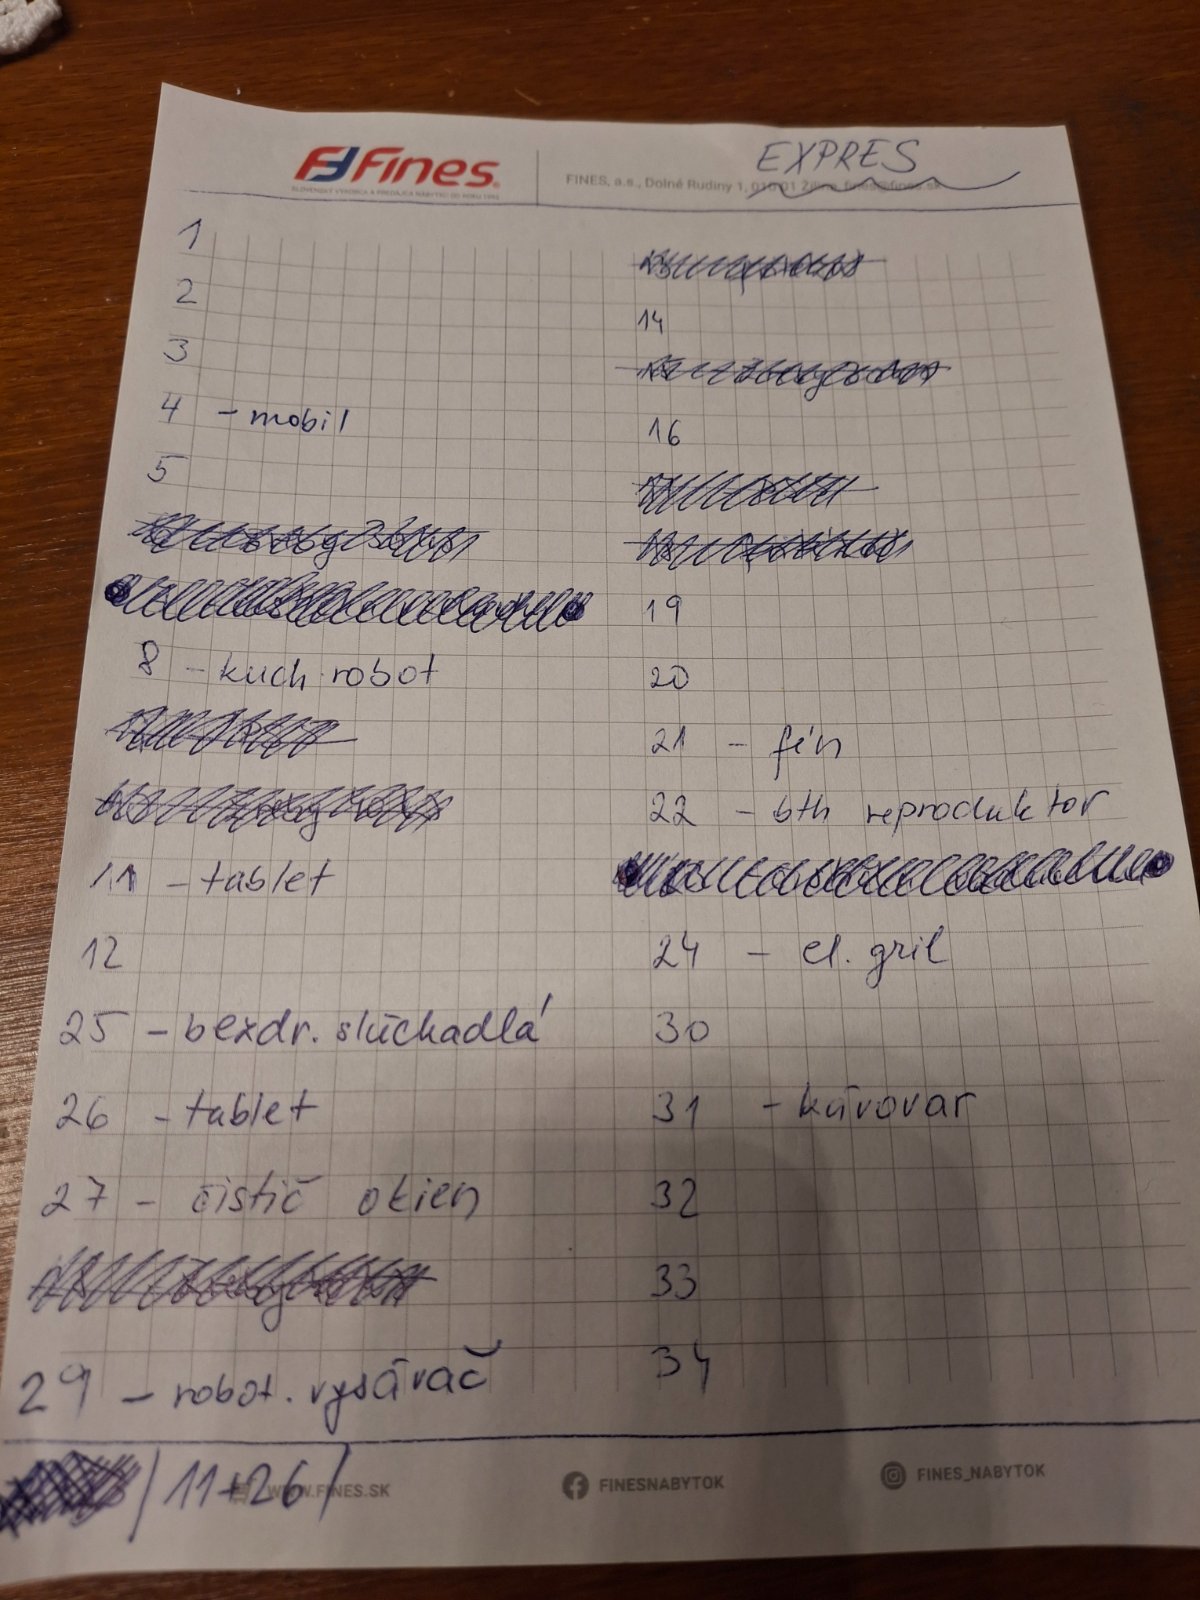 Fines
SLOVENSKÝ VÝROBCA A PREDAJCA NÁBYTKU OD ROKU 1992
FINES, a.s., Dolné Rudiny 1, 010 01 Žilina, fines@fines.sk
EXPRES
1
2
3
4 - mobil
5
8 - kuch. robot
11 - tablet
12
25 - bezdr. slúchadlá
26 - tablet
27 - čistič okien
29 - robot. vysávač
14
16
19
20
21 - fén
22 - bth reproduktor
24 - el. gril
30
31 - kávovar
32
33
34
/ 11+26 /
WWW.FINES.SK
FINESNABYTOK
FINES_NABYTOK